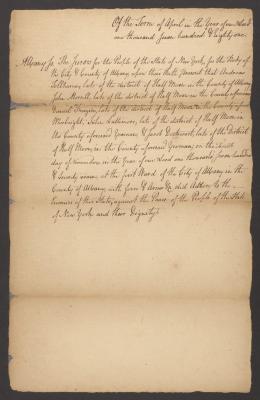 Of the Term of April in the Year of our Lord
one thousand seven hundred & eighty one.
Albany ss The Jurors for the People of the State of New York, for the Body of
the City & County of Albany upon their Oath, present that Andrew
late of the district of Half Moon in the County of Albany
John Merrill late of the district of Half Moon in the County aforesaid
Daniel late of the district of Half Moon in the County of
John late of the district of Half Moon in
the County aforesaid Yeoman & Jacob late of the district
of Half Moon in the County aforesaid Yeoman, on the
day of November in the Year of our Lord one thousand seven hundred
& seventy at the first Ward of the City of Albany in the
County of Albany, with force & Arms &c did Adhere to the
Enemies of this State against the Peace of the People of the State
of New York and their Dignity